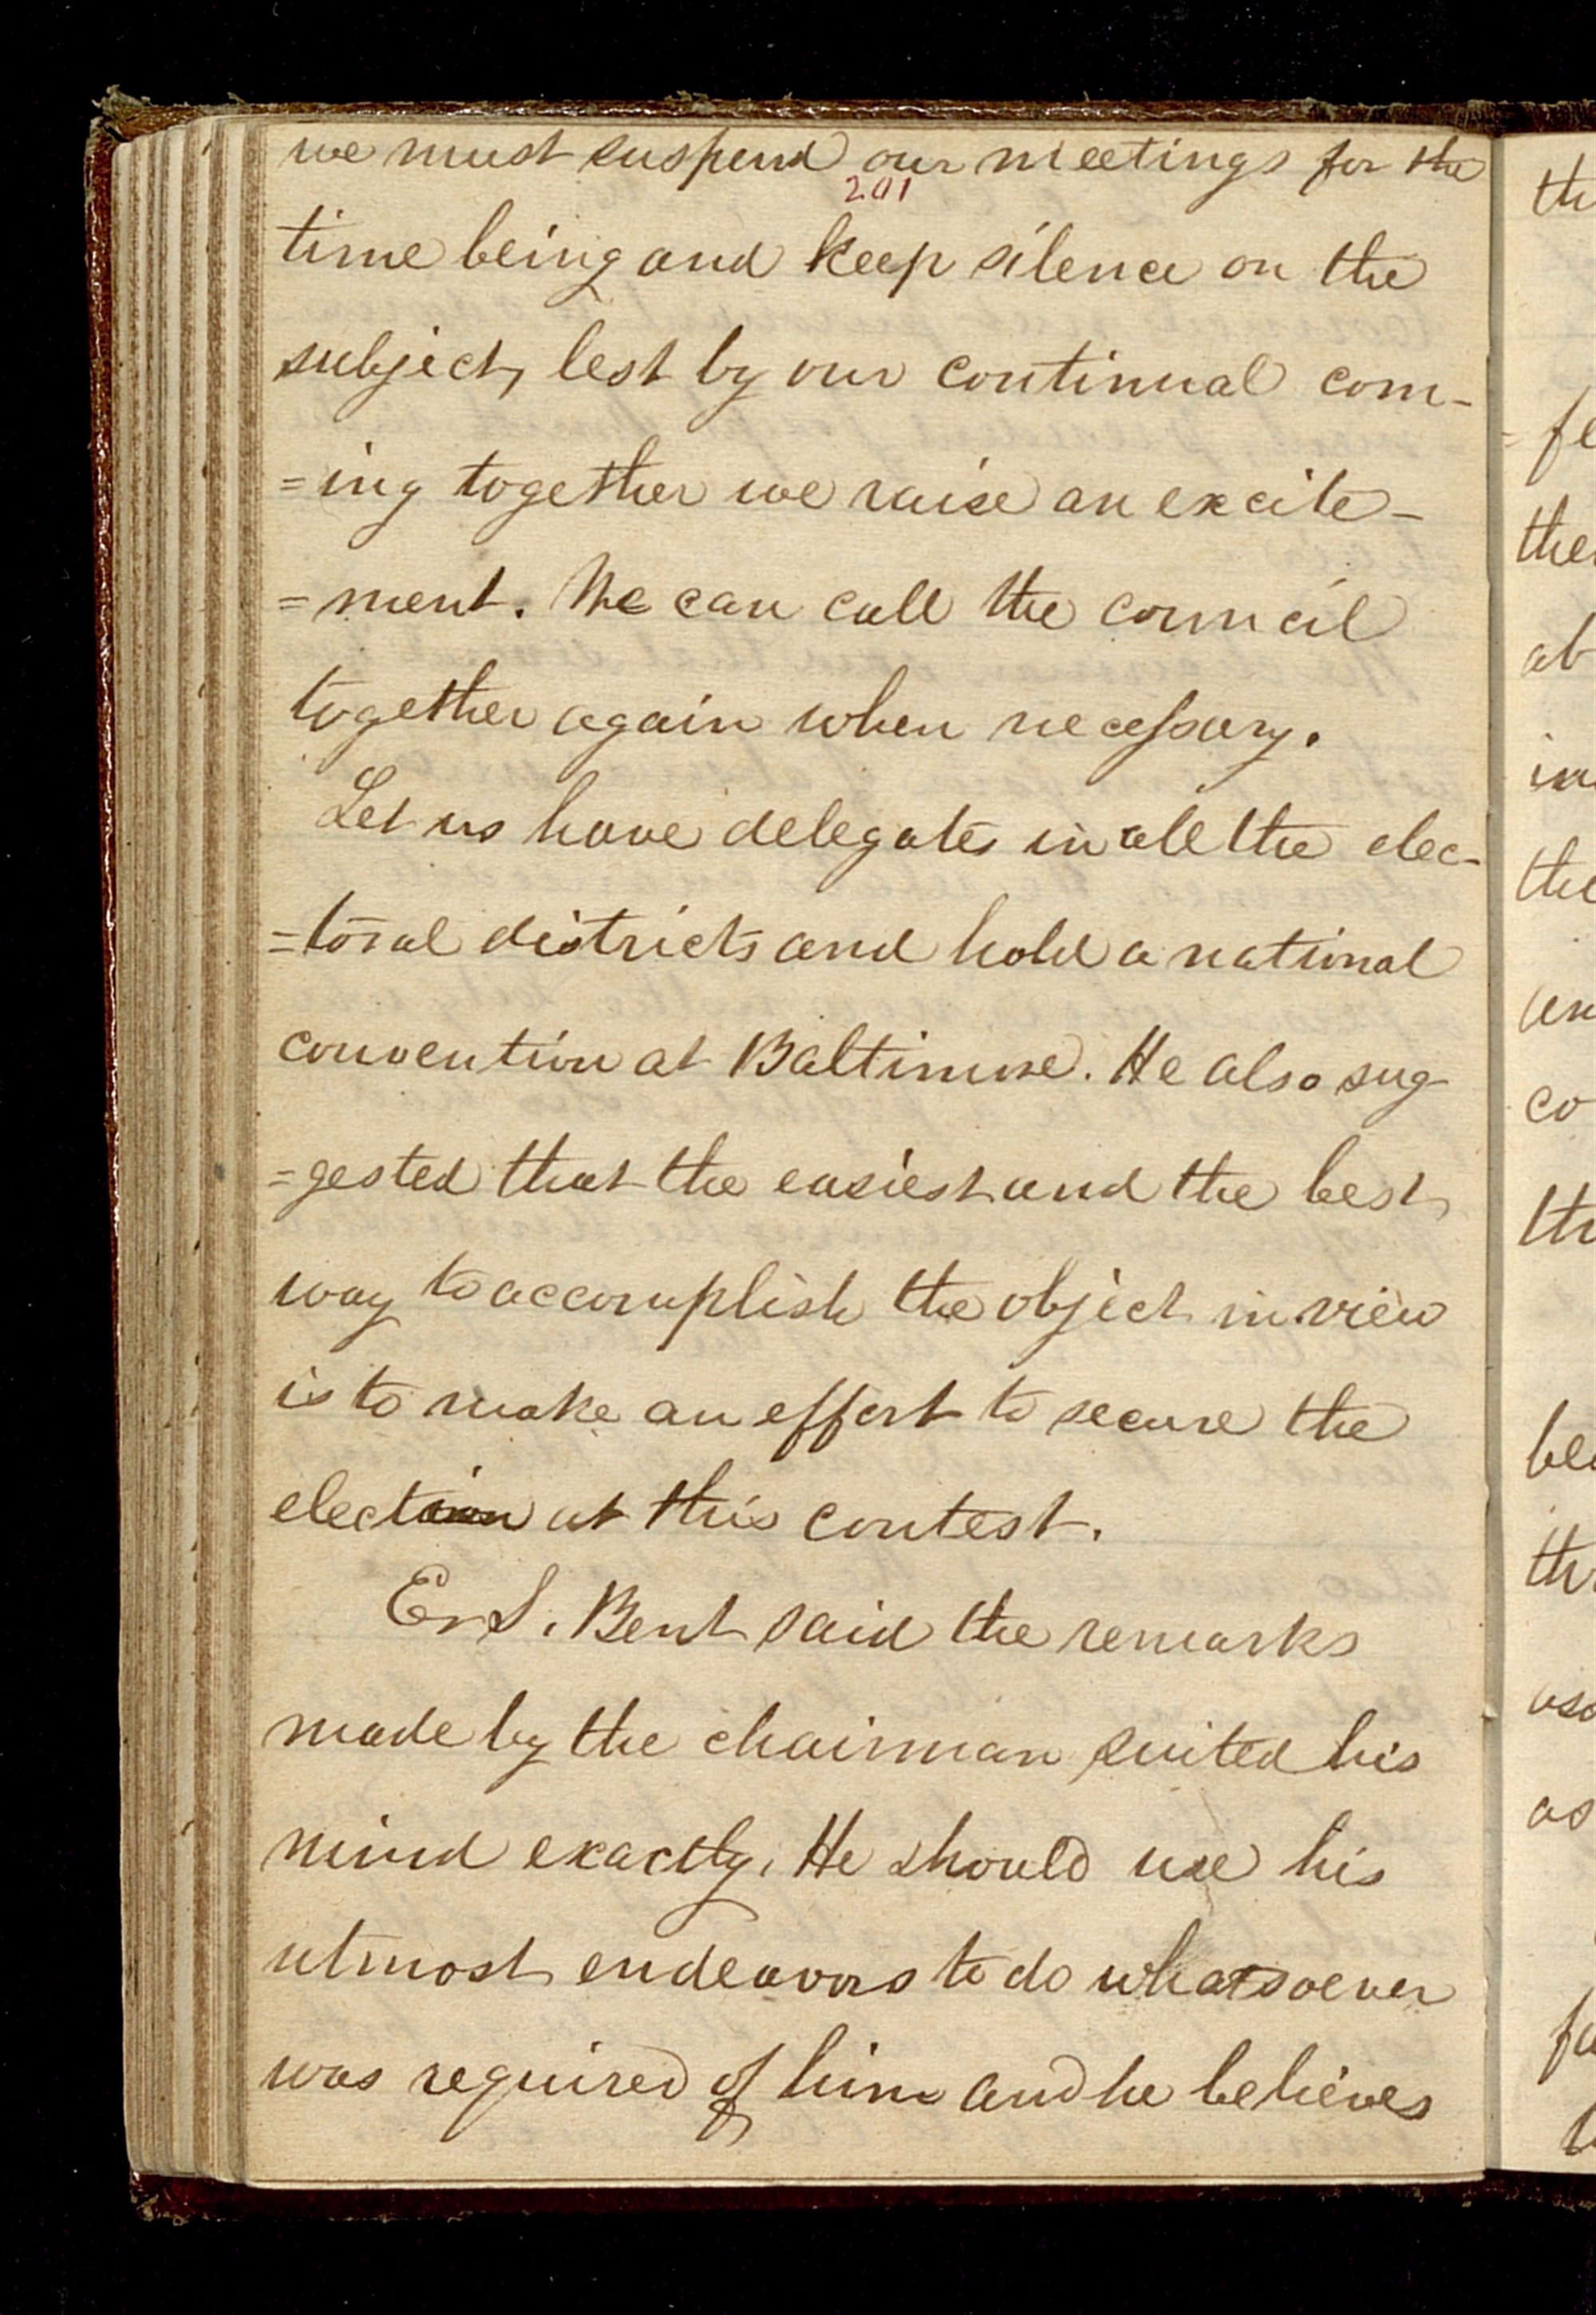 we must suspend our meetings for the
201
time being and keep silence on the
subject, lest by our continual com-
=ing together we raise an excite-
=ment. We can call the council
together again when necessary.
Let us have delegates in all the elec-
=toral districts and hold a national
convention at Baltimore. He also sug-
=gested that the easiest and the best
way to accomplish the object in view
is to make an effort to secure the
election at this contest.
Er S. Bent said the remarks
made by the chairman suited his
mind exactly. He should use his
utmost endeavors to do whatsoever
was required of him and he believes